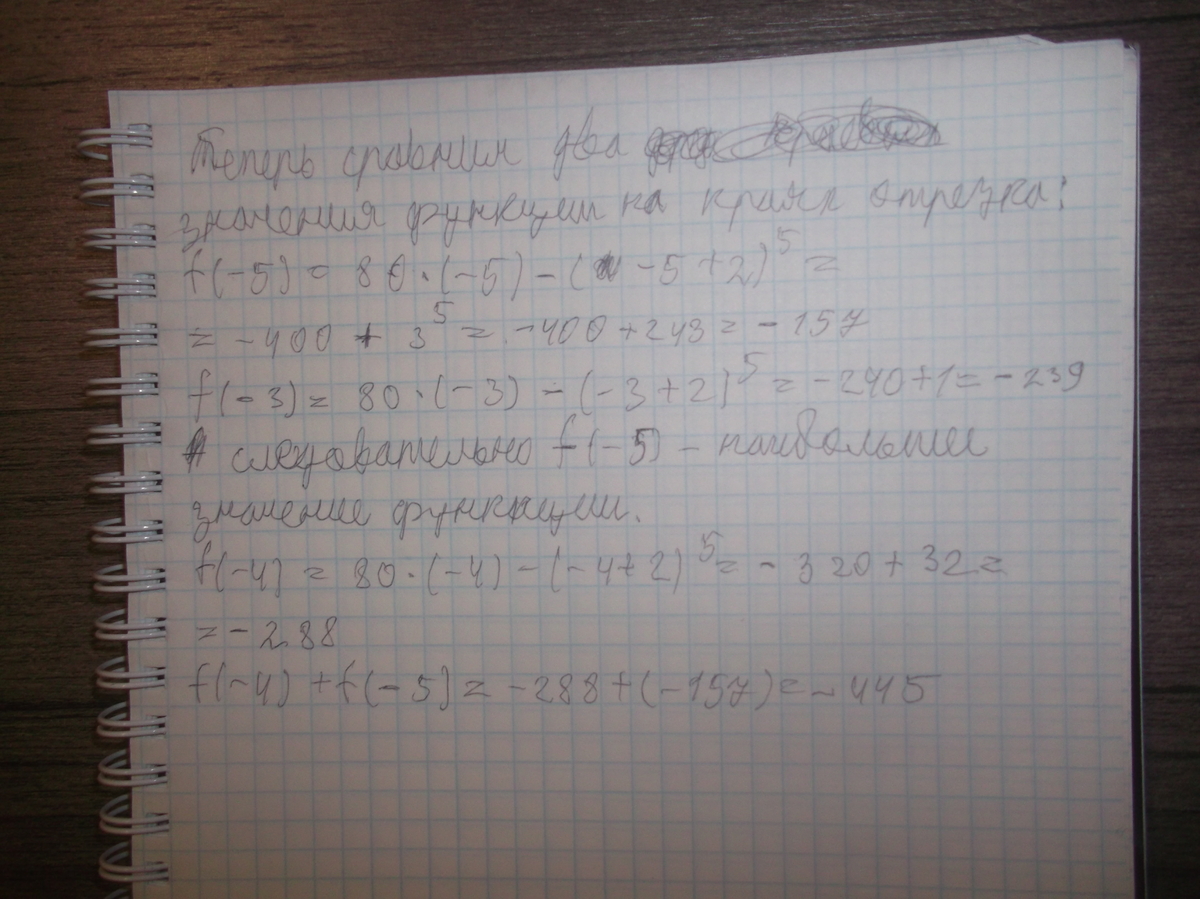 Теперь сравним два
значения функции на краях отрезка:
f(-5) = 80·(-5) - (-5+2)^5 =
= -400 + 3^5 = -400 + 243 = -157
f(-3) = 80·(-3) - (-3+2)^5 = -240+1 = -239
следовательно f(-5) - наибольшее
значение функции.
f(-4) = 80·(-4) - (-4+2)^5 = -320 + 32 =
= -288
f(-4) + f(-5) = -288 + (-157) = -445